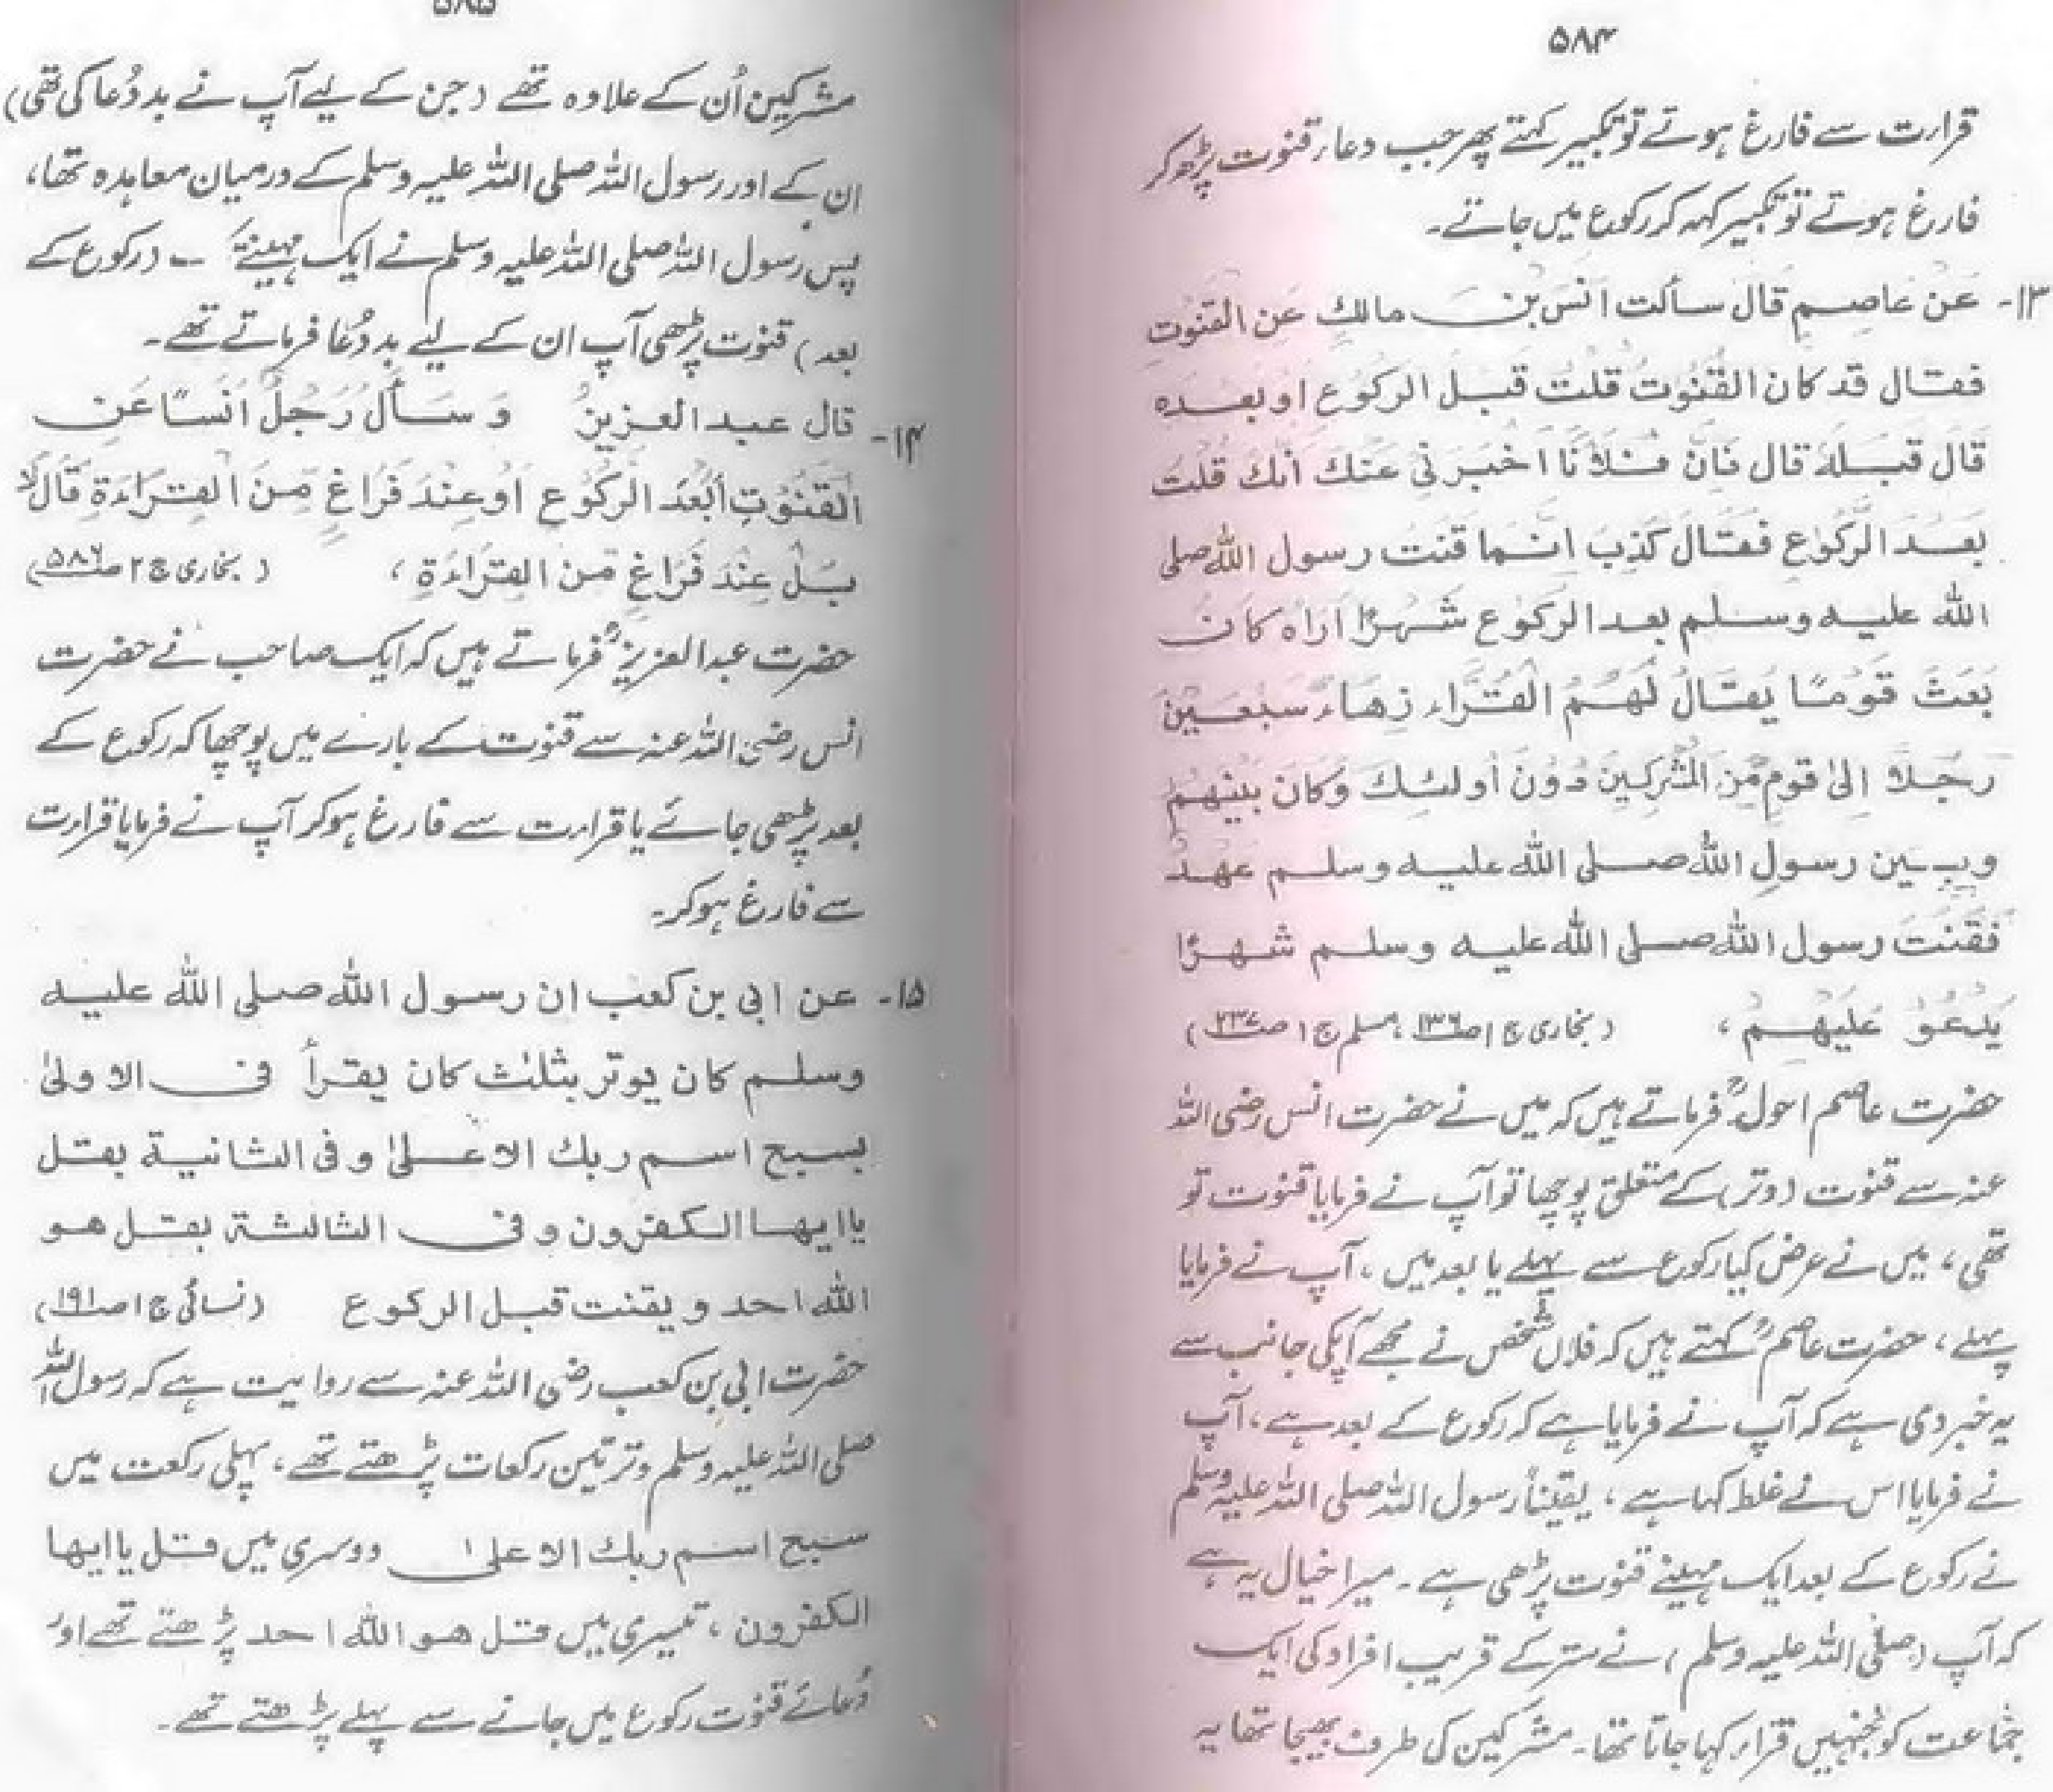 ۵۸۴
قرارت سے فارغ ہوتے تو تکبیر کہتے پھر جب دعاء قنوت پڑھ کر
فارغ ہوتے تو تکبیر کہہ کر رکوع میں جاتے۔
۱۳- عَنْ عاصِمٍ قَالَ سألت اَنسَ بْنَ مالكٍ عَنِ القنوتِ
فقال قد كان القُنُوتُ قلتُ قبل الركوعِ او بعده
قال قبلهٗ قال فَاِنَّ فُلَانًا اَخْبَرَنِیْ عنك اَنَّكَ قُلتَ
بَعْدَ الرَّكُوعِ فقالَ كَذِبَ اِنَّما قَنَتَ رسول اللّٰه صلى
اللّٰه عليه وسلم بعد الركوع شَهْرًا اُرَاهُ كَانَ
بَعَثَ قَوْمًا يُقَالُ لَهُمُ الْقُرَّاءُ زُهَاءَ سَبْعِيْنَ
رَجُلًا اِلىٰ قومٍ مِّنَ الْمُشْرِكِيْنَ دُوْنَ اُولٰئِكَ وَكَانَ بَيْنَهُمْ
وبين رسولِ اللّٰه صلى اللّٰه عليه وسلم عَهْدٌ
فَقَنَتَ رسول اللّٰه صلى اللّٰه عليه وسلم شهرًا
يَدْعُوْ عَلَيْهِمْ، (بخاری ج ۱ ص۱۳۶، مسلم ج ۱ ص۲۳۷)
حضرت عاصم احولؒ فرماتے ہیں کہ میں نے حضرت انس رضی اللہ
عنہ سے قنوت (وتر) کے متعلق پوچھا تو آپ نے فرمایا قنوت تو
تھی، میں نے عرض کیا رکوع سے پہلے یا بعد میں، آپ نے فرمایا
پہلے، حضرت عاصمؒ کہتے ہیں کہ فلاں شخص نے مجھے آپکی جانب سے
یہ خبر دی ہے کہ آپ نے فرمایا ہے کہ رکوع کے بعد ہے، آپ
نے فرمایا اس نے غلط کہا ہے، یقیناً رسول اللہ صلی اللہ علیہ وسلم
نے رکوع کے بعد ایک مہینے قنوت پڑھی ہے۔ میرا خیال یہ ہے
کہ آپ (صلی اللہ علیہ وسلم) نے ستر کے قریب افراد کی ایک
جماعت کو جنہیں قراء کہا جاتا تھا۔ مشرکین کی طرف بھیجا تھا یہ
۵۸۵
مشرکین اُن کے علاوہ تھے (جن کے لیے آپ نے بد دُعا کی تھی)
ان کے اور رسول اللہ صلی اللہ علیہ وسلم کے درمیان معاہدہ تھا،
پس رسول اللہ صلی اللہ علیہ وسلم نے ایک مہینے (رکوع کے
بعد) قنوت پڑھی آپ ان کے لیے بد دُعا فرماتے تھے۔
۱۴- قال عبد العزيزِ وَ سَأَلَ رَجُلٌ اَنَسًا عَنِ
الْقُنُوْتِ أَبَعْدَ الرُكُوْعِ اَوْ عِنْدَ فَرَاغٍ مِّنَ الْقِرَاءَةِ قَالَ لَا
بَلْ عِنْدَ فَرَاغٍ مِّنَ الْقِرَاءَةِ، (بخاری ج ۲ ص۵۸۶)
حضرت عبد العزیزؒ فرماتے ہیں کہ ایک صاحب نے حضرت
انس رضی اللہ عنہ سے قنوت کے بارے میں پوچھا کہ رکوع کے
بعد پڑھی جائے یا قراءت سے فارغ ہو کر آپ نے فرمایا قراءت
سے فارغ ہو کر۔
۱۵- عن ابی بن كعب ان رسول اللّٰه صلى اللّٰه عليه
وسلم كان يوتر بثلٰث كان يقرأ فی الاولىٰ
بسبح اسم ربك الاعلىٰ وفی الثانية بقل
يا ايها الكفرون وفی الثالثة بقل هو
اللّٰه احد و يقنت قبل الركوع (نسائی ج ۱ ص۱۹۱)
حضرت ابی بن کعب رضی اللہ عنہ سے روایت ہے کہ رسول اللہ
صلی اللہ علیہ وسلم وتر تین رکعات پڑھتے تھے، پہلی رکعت میں
سبح اسم ربك الاعلىٰ دوسری میں قل يا ايها
الكفرون، تیسری میں قل هو اللّٰه احد پڑھتے تھے اور
دُعائے قنوت رکوع میں جانے سے پہلے پڑھتے تھے۔